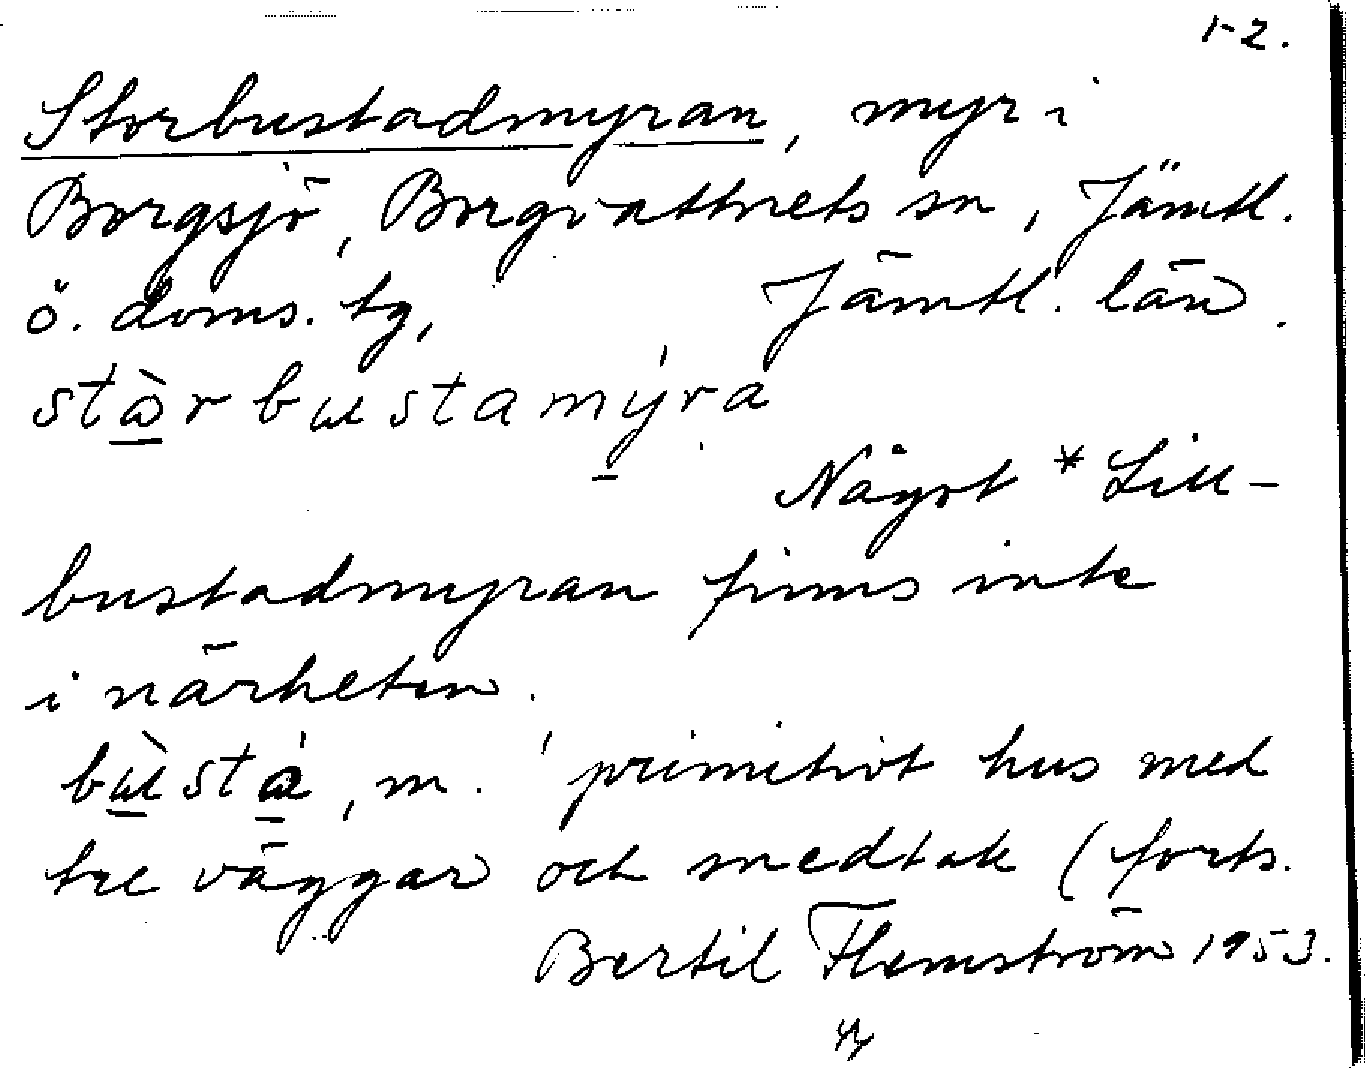 1-2.
Storbustadmyran, myr i
Borgsjö, Borgvattnets sn, Jämtl.
ö. doms. tg, Jämtl. län.
Något *Lill-
bustadmyran finns inte
i närheten.
, m. 'primitivt hus med
tre väggar och snedtak (forts.
Bertil Flemström 1953.